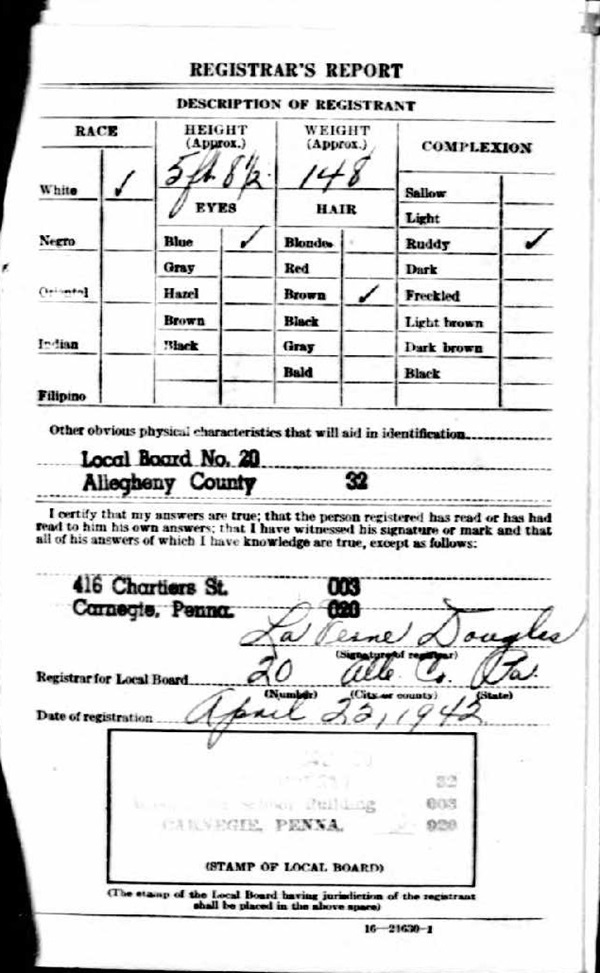 REGISTRAR'S REPORT
DESCRIPTION OF REGISTRANT
RACE
HEIGHT
(Approx.)
WEIGHT
(Approx.)
COMPLEXION
5 ft. 8½
148
White ✓
Sallow
EYES
HAIR
Light
Negro
Blue ✓
Blonde
Ruddy ✓
Gray
Red
Dark
Oriental
Hazel
Brown ✓
Freckled
Brown
Black
Light brown
Indian
Black
Gray
Dark brown
Bald
Black
Filipino
Other obvious physical characteristics that will aid in identification
Local Board No. 20
Allegheny County 32
I certify that my answers are true; that the person registered has read or has had
read to him his own answers; that I have witnessed his signature or mark and that
all of his answers of which I have knowledge are true, except as follows:
416 Chartiers St. 003
Carnegie, Penna. 020
La Verne Douglas
(Signature of registrar)
Registrar for Local Board 20 Alle. Co. Pa.
(Number) (City or county) (State)
Date of registration April 22, 1942
32
School Building 003
CARNEGIE, PENNA. 020
(STAMP OF LOCAL BOARD)
(The stamp of the Local Board having jurisdiction of the registrant
shall be placed in the above space)
16—21630-1